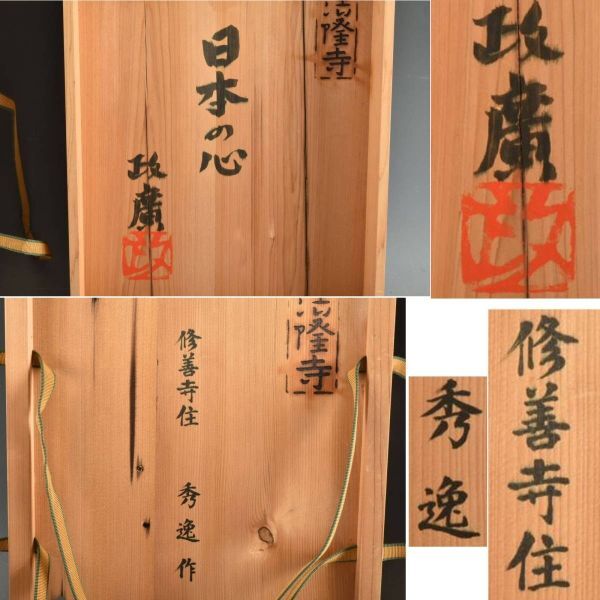 日本の心
政廣
政
隆寺
政廣
政
修善寺住
秀逸作
隆寺
秀逸
修善寺住